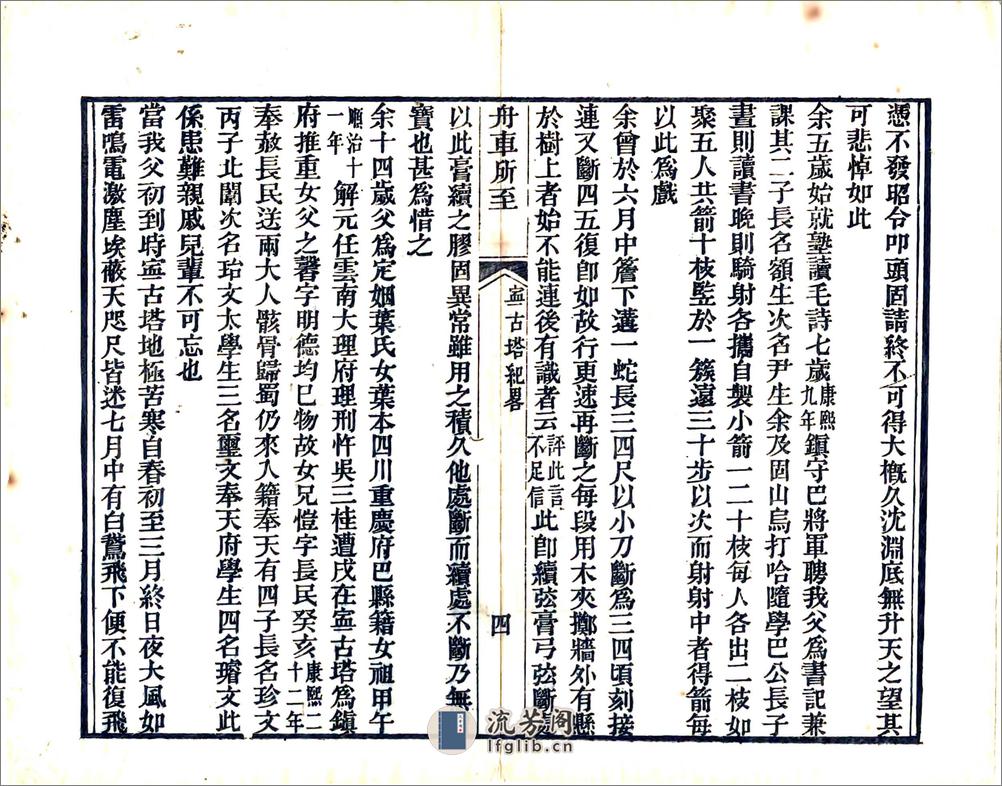 憑不發昭令叩頭固請終不可得大槪久沈淵底無升天之望其
可悲悼如此
余五歲始就塾讀毛詩七歲康熙九年鎭守巴將軍聘我父爲書記兼
課其二子長名額生次名尹生余及固山烏打哈隨學巴公長子
晝則讀書晚則騎射各攜自製小箭一二十枝每人各出二枝如
聚五人共箭十枝竪於一簇遠三十步以次而射射中者得箭每
以此爲戲
余曾於六月中簷下遇一蛇長三四尺以小刀斷爲三四頃刻接
連又斷四五復卽如故行更速再斷之每段用木夾擲牆外有懸
於樹上者始不能連後有識者云評此言不足信此卽續弦膏弓弦斷處
舟車所至
寧古塔紀畧
四
以此膏續之膠固異常雖用之積久他處斷而續處不斷乃無
寶也甚爲惜之
余十四歲父爲定姻葉氏女葉本四川重慶府巴縣籍女祖甲午
順治十一年解元任雲南大理府理刑忤吳三桂遭戌在寧古塔爲鎭
府推重女父之馨字明德均已物故女兄愷字長民癸亥康熙二十二年
奉赦長民送兩大人骸骨歸蜀仍來入籍奉天有四子長名珍文
丙子北闈次名珆文太學生三名璽文奉天府學生四名璿文此
係患難親戚兒輩不可忘也
當我父初到時寧古塔地極苦寒自春初至三月終日夜大風如
雷鳴電激塵埃蔽天咫尺皆迷七月中有白鵞飛下便不能復飛
流芳阁
lfglib.cn